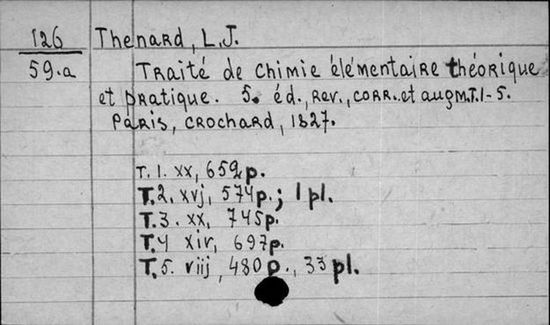 126 Thenard, L.J.
59.a Traité de chimie élémentaire théorique
et pratique. 5. éd., rev., corr. et augm. T.1-5.
Paris, Crochard, 1827.
T. 1. xx, 652p.
T.2. xvj, 574p.; 1 pl.
T.3. xx, 745p.
T.4 xiv, 697p.
T.5. viij, 480p., 33 pl.